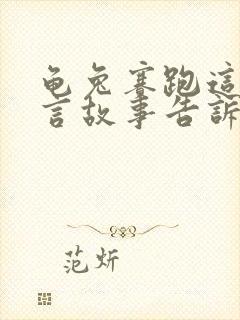 龟兔赛跑這
言故事告訴
范炘